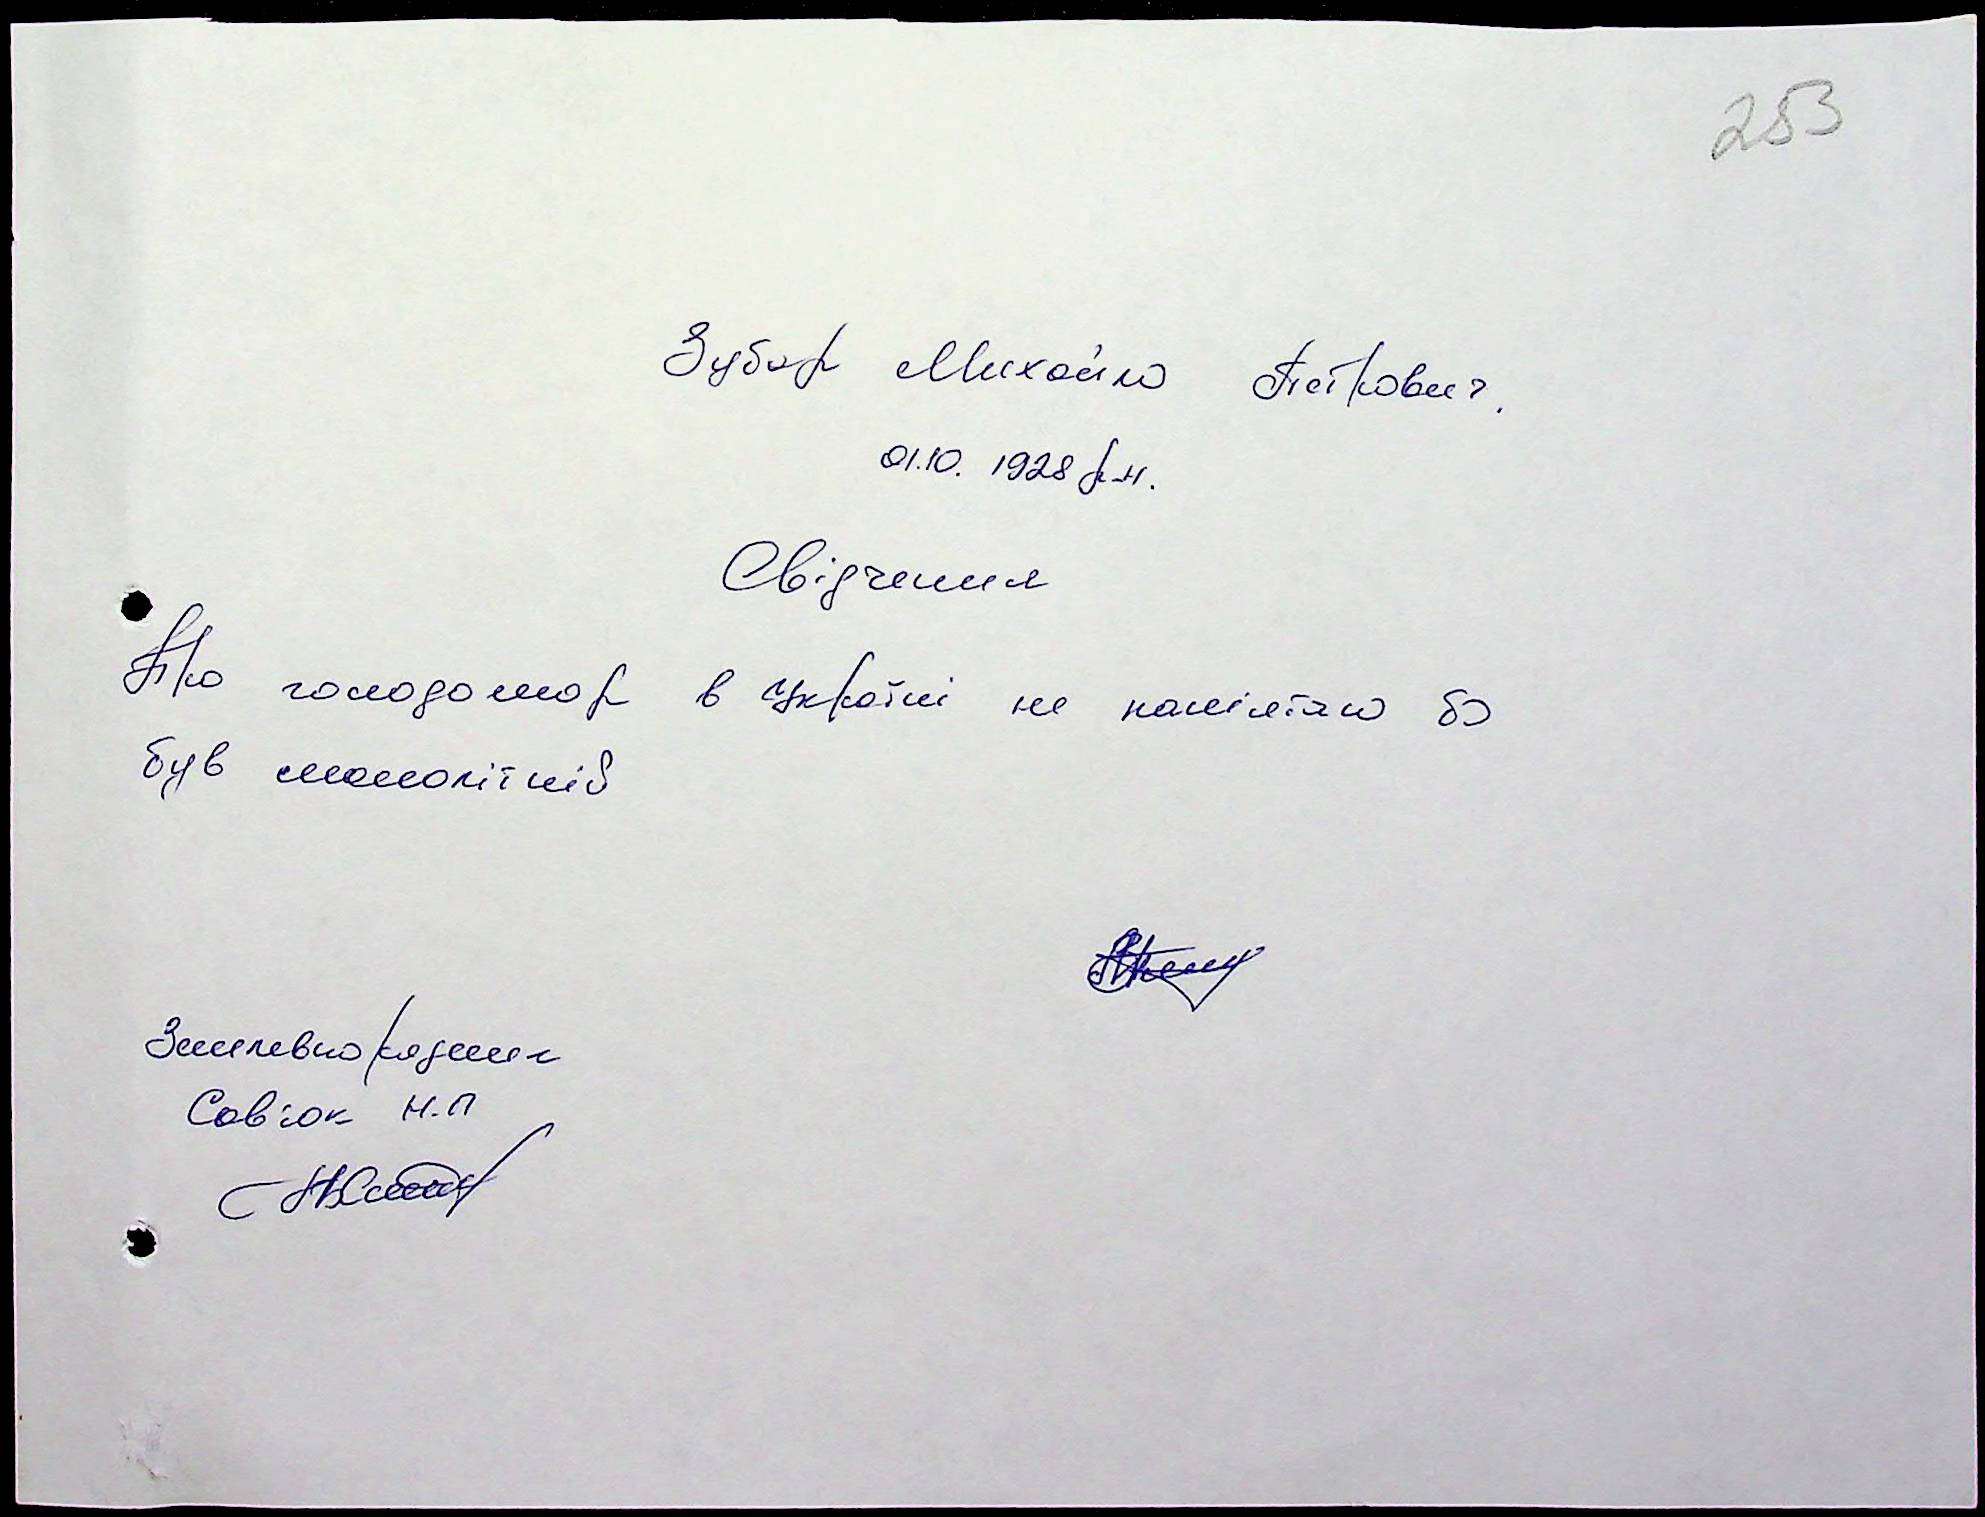 253
Зубар Михайло Петрович.
01.10. 1928 р.н.
Свідчення
Про голодомор в Україні не памʼятаю бо
був малолітній
Землевпорядник
Совʼюк Н.П